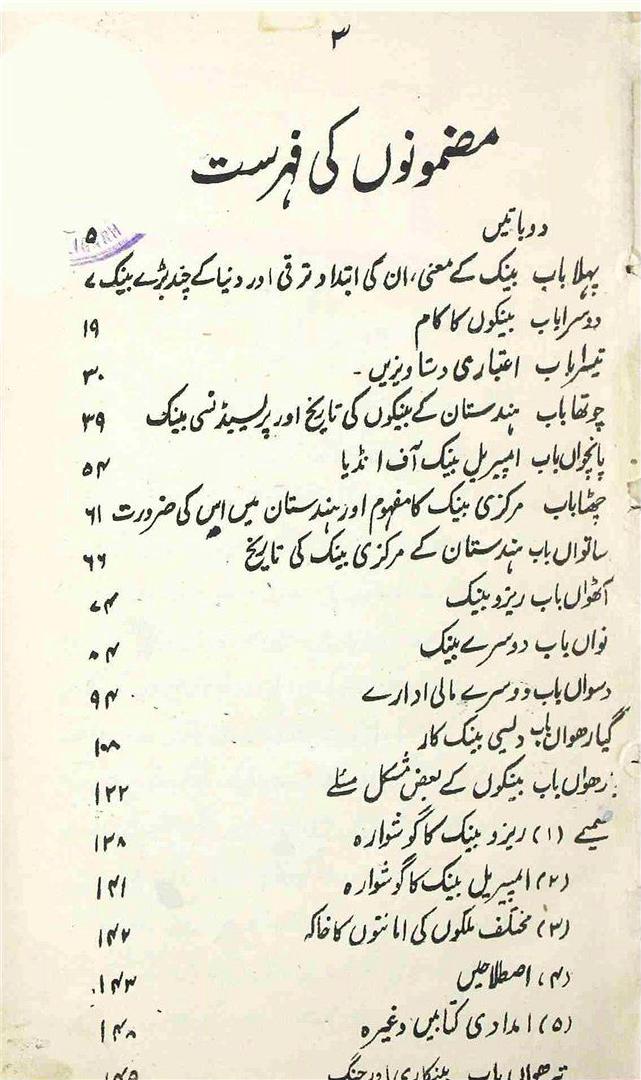 ۳
مضمونوں کی فہرست
دو باتیں ۵
پہلا باب بینک کے معنی، ان کی ابتدا و ترقی اور دنیا کے چند بڑے بینک ۷
دوسرا باب بینکوں کا کام ۱۹
تیسرا باب اعتباری دستاویزیں - ۳۰
چوتھا باب ہندستان کے بینکوں کی تاریخ اور پرلسیڈنسی بینک ۳۹
پانچواں باب امپیریل بینک آف انڈیا ۵۴
چھٹا باب مرکزی بینک کا مفہوم اور ہندستان میں اس کی ضرورت ۶۱
ساتواں باب ہندستان کے مرکزی بینک کی تاریخ ۶۶
آٹھواں باب ریزرو بینک ۷۴
نواں باب دوسرے بینک ۸۴
دسواں باب دوسرے مالی ادارے ۹۴
گیارھواں باب دلیسی بینک کار ۱۰۸
بارھواں باب بینکوں کے بعض مشکل مسئلے ۱۲۲
ضمیمے (۱) ریزو بینک کا گوشوارہ ۱۳۸
(۲) امپیریل بینک کا گوشوارہ ۱۴۱
(۳) مختلف ملکوں کی امانتوں کا خاکہ ۱۴۲
(۴) اصطلاحیں ۱۴۳
(۵) امدادی کتابیں وغیرہ ۱۴۸
تیرھواں باب بینکاری اور جنگ ۱۴۵